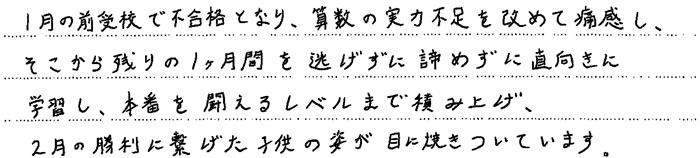 1月の前受校で不合格となり、算数の実力不足を改めて痛感し、
そこから残りの1ヶ月間を逃げずに諦めずに直向きに
学習し、本番を闘えるレベルまで積み上げ、
2月の勝利に繋げた子供の姿が目に焼きついています。